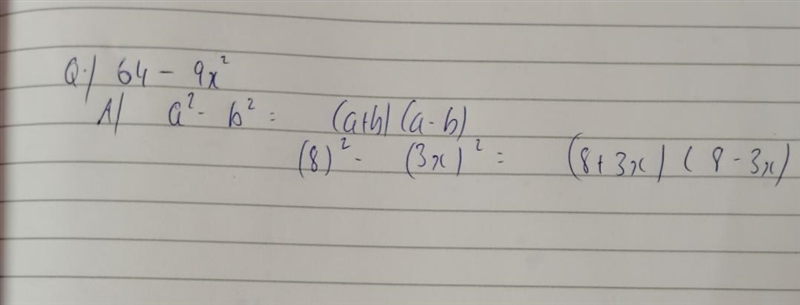 Q:/ 64 - 9x²
A/ a² - b² = (a+b) (a-b)
(8)² - (3x)² = (8+3x) (8-3x)